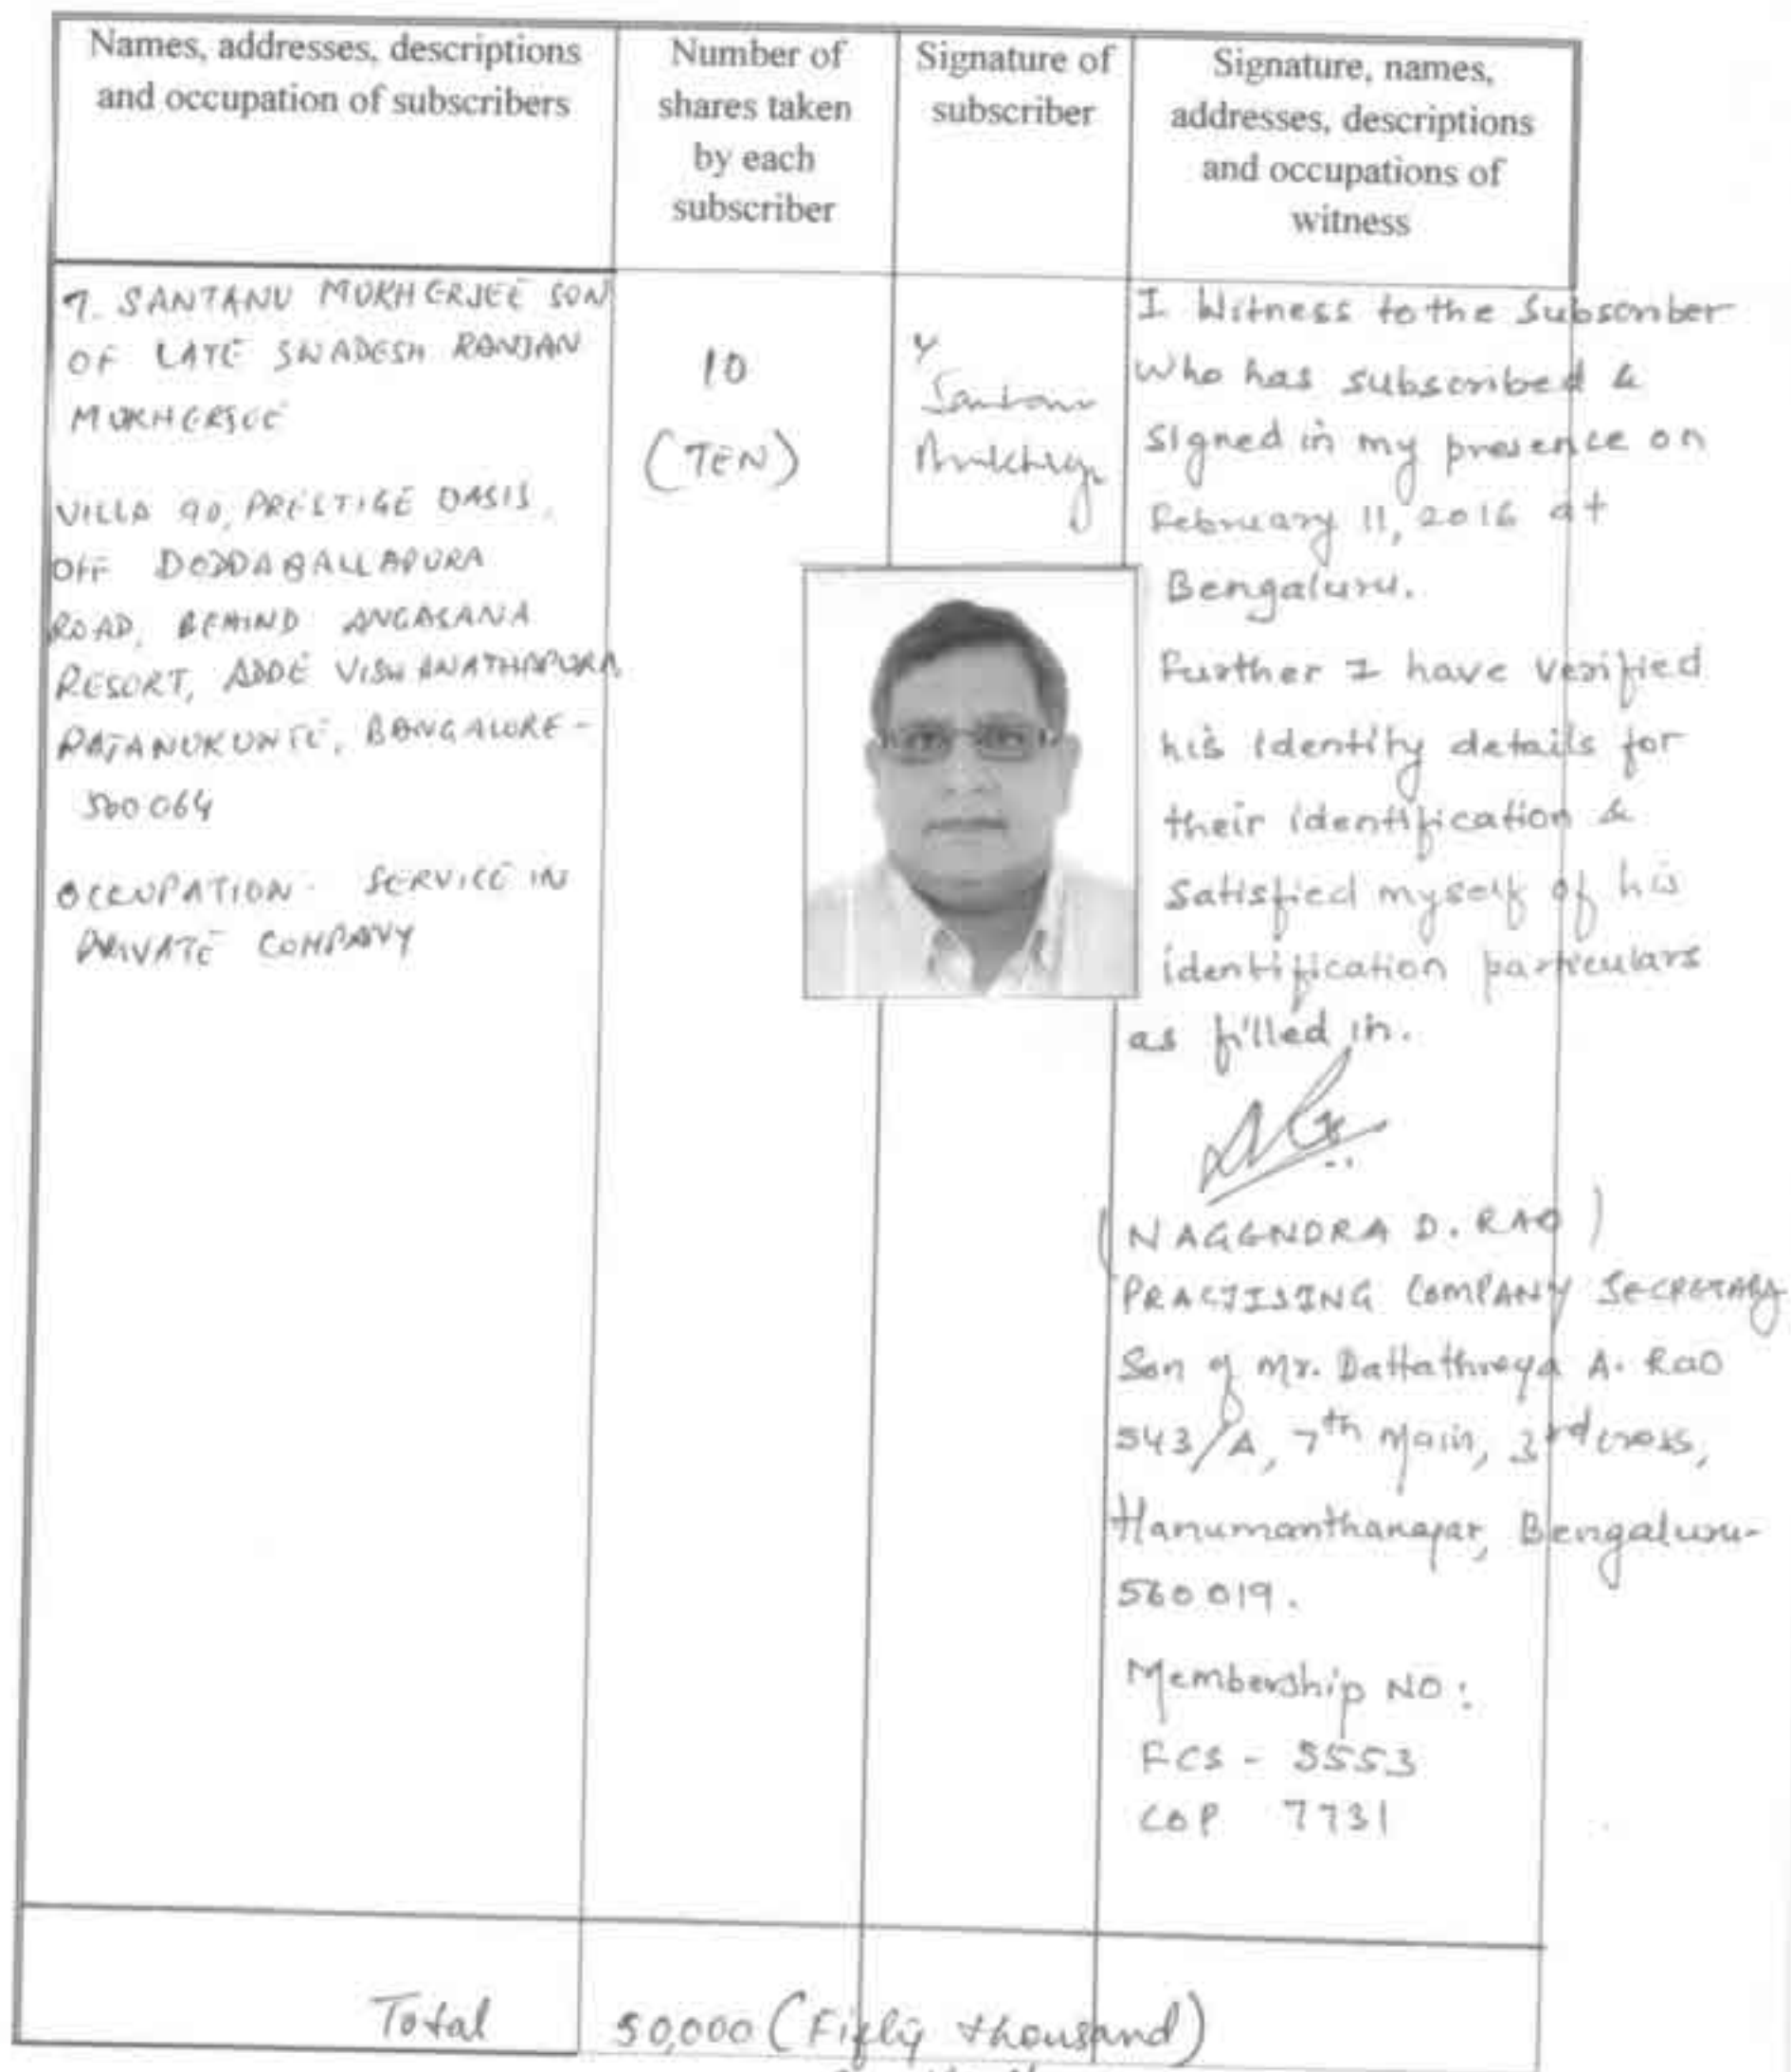 Names, addresses, descriptions
and occupation of subscribers
Number of
shares taken
by each
subscriber
Signature of
subscriber
Signature, names,
addresses, descriptions
and occupations of
witness
7. SANTANU MUKHERJEE SON
OF LATE SWADESH RANJAN
MUKHERJEE
VILLA 90, PRESTIGE OASIS,
OFF DODDABALLAPURA
ROAD, BEHIND ANGASANA
RESORT, ADDE VISHWANATHAPURA
RAJANUKUNTE, BANGALORE -
560064
OCCUPATION - SERVICE IN
PRIVATE COMPANY
10
(TEN)
Santanu
Mukherjee
I Witness to the Subscriber
Who has subscribed &
signed in my presence on
February 11, 2016 at
Bengaluru.
Further I have verified
his identity details for
their identification &
Satisfied myself of his
identification particulars
as filled in.
(NAGENDRA D. RAO)
PRACTISING COMPANY SECRETARY
Son of Mr. Dattathreya A. Rao
543/A, 7th Main, 3rd cross,
Hanumanthanagar, Bengaluru-
560019.
Membership NO:
FCS - 5553
COP 7731
Total 50,000 (Fifty thousand)